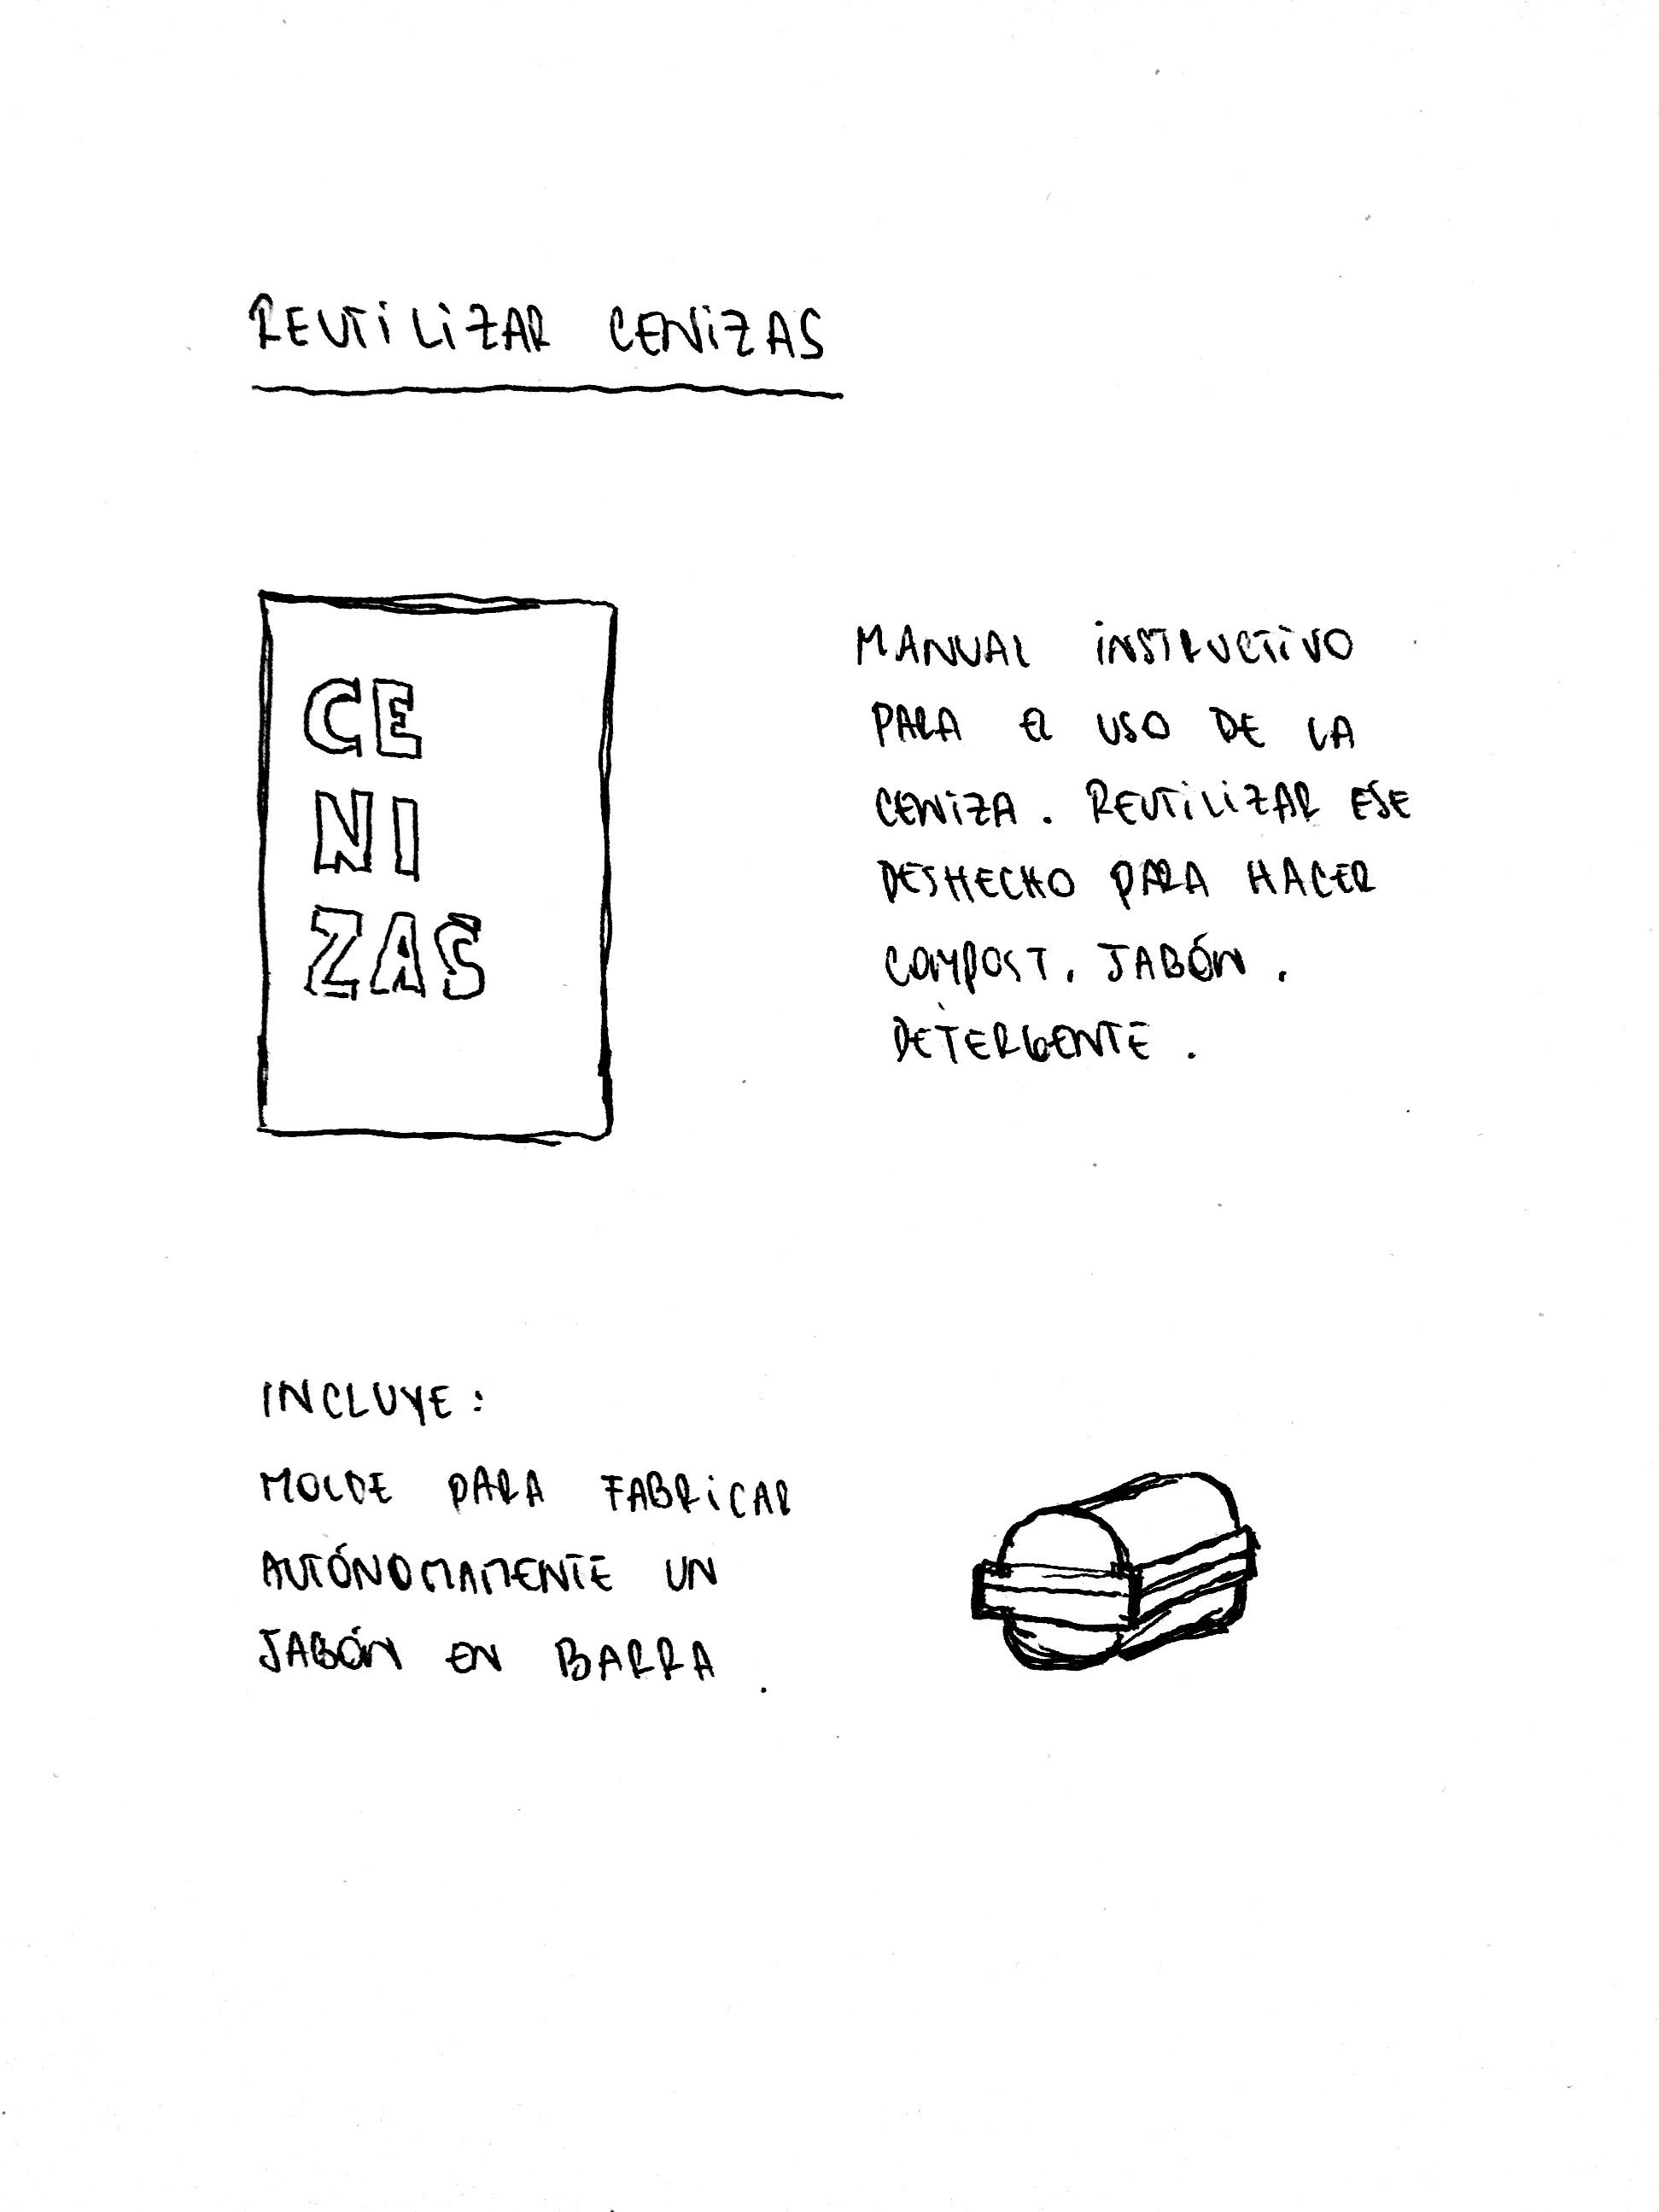 REUTILIZAR CENIZAS
CE
NI
ZAS
MANUAL INSTRUCTIVO
PARA EL USO DE LA
CENIZA. REUTILIZAR ESE
DESHECHO PARA HACER
COMPOST, JABÓN,
DETERGENTE.
INCLUYE:
MOLDE PARA FABRICAR
AUTÓNOMAMENTE UN
JABÓN EN BARRA.